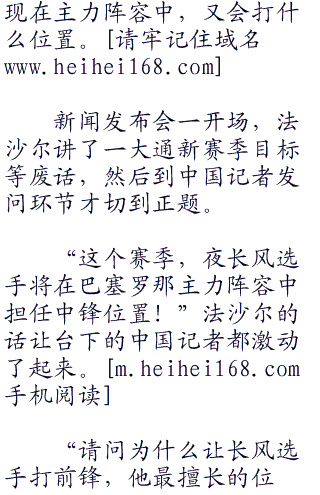 现在主力阵容中，又会打什
么位置。[请牢记住域名
www.heihei168.com]
新闻发布会一开场，法
沙尔讲了一大通新赛季目标
等废话，然后到中国记者发
问环节才切到正题。
“这个赛季，夜长风选
手将在巴塞罗那主力阵容中
担任中锋位置！”法沙尔的
话让台下的中国记者都激动
了起来。[m.heihei168.com
手机阅读]
“请问为什么让长风选
手打前锋，他最擅长的位